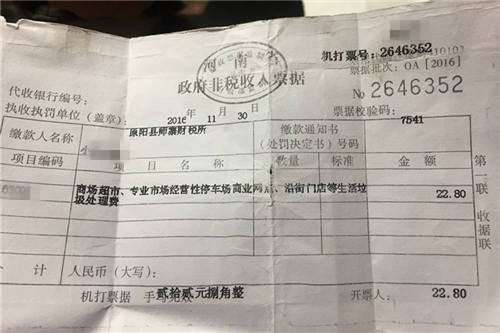 机打票号: 2646352
410103
河南省
票据批次: OA [2016]
政府非税收入票据
No 2646352
代收银行编号:
执收执罚单位(盖章):
2016年 11月 30日
票据校验码:
原阳县师寨财税所
7541
缴款人名称
小
缴款通知书
(处罚决定书)号码
项目编码
项目名称
数量
标准
金额
商场超市、专业市场经营性停车场商业网点、沿街门店等生活垃圾处理费
22.80
第二联
收据联
合计
人民币(大写):
贰拾贰元捌角整
22.80
机打票据 手写无效
开票人: